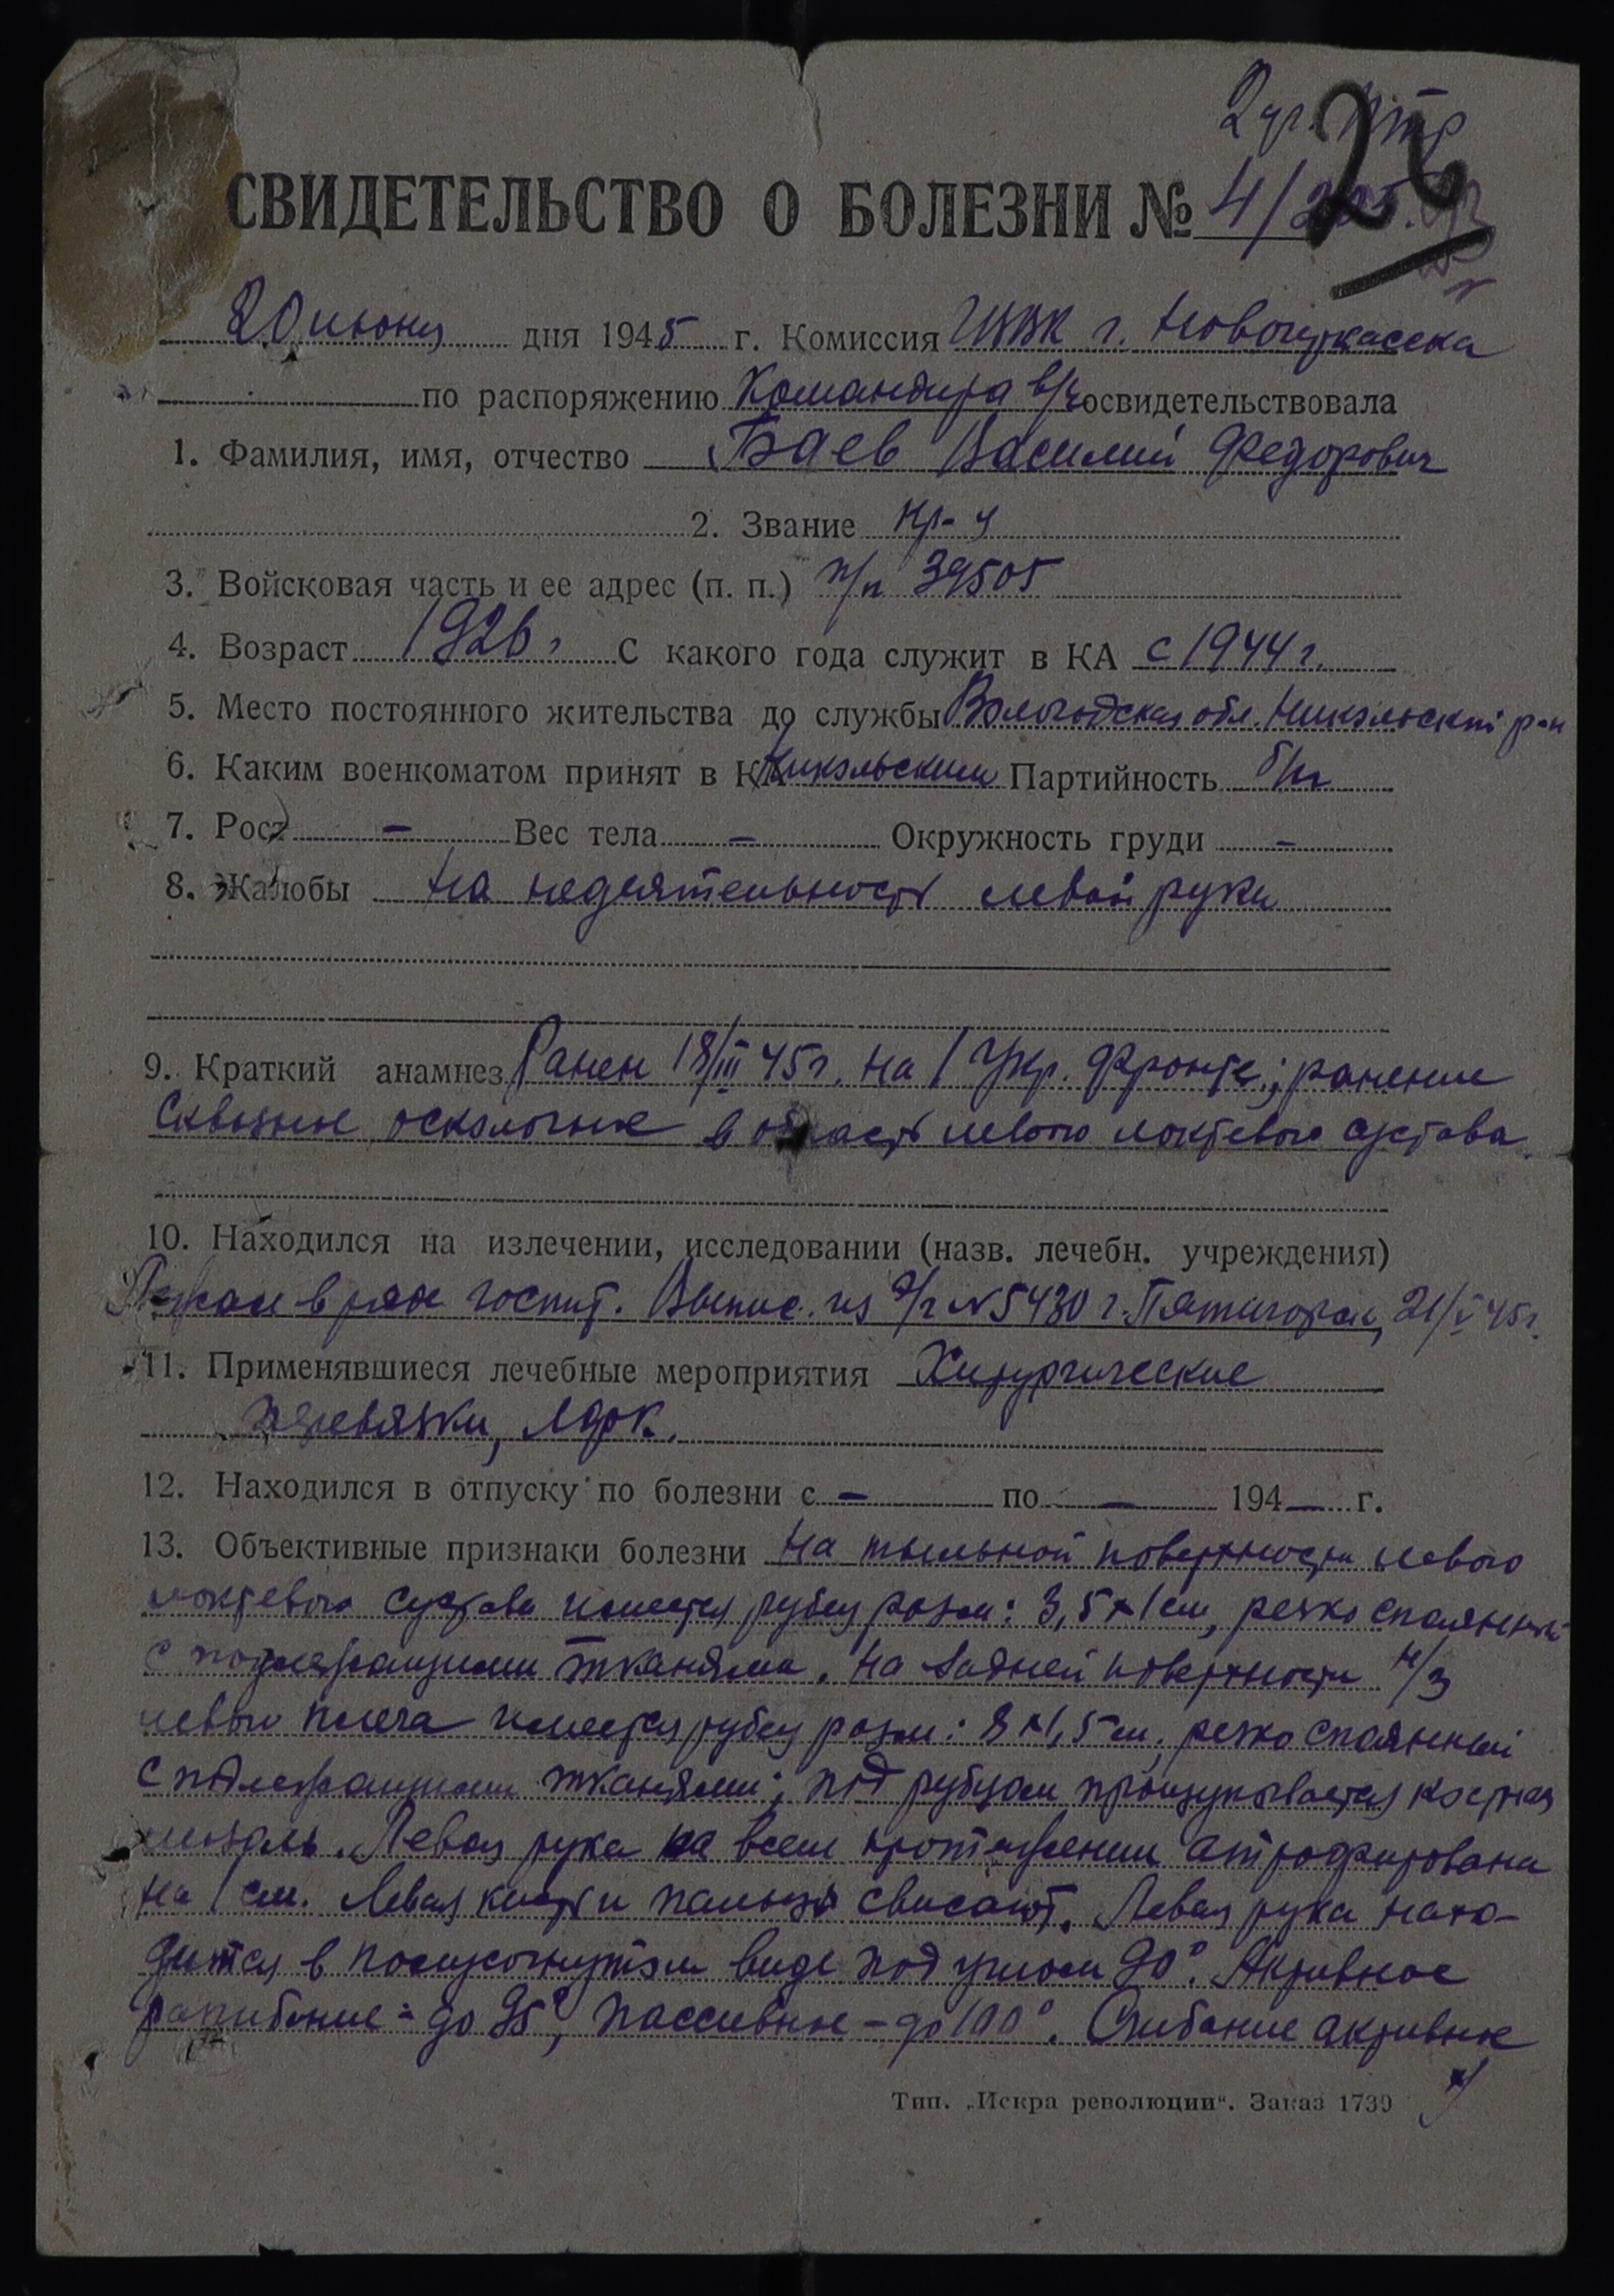 26
СВИДЕТЕЛЬСТВО О БОЛЕЗНИ № 4/
20 июня дня 1945 г. Комиссия ГВВК г. Новочеркасска
по распоряжению Командира в/ч освидетельствовала
1. Фамилия, имя, отчество Баев Василий Федорович
2. Звание кр-ц
3. Войсковая часть и ее адрес (п. п.) п/п 39505
4. Возраст 1926 г С какого года служит в КА с 1944 г.
5. Место постоянного жительства до службы Вологодская обл. Никольский р-н
6. Каким военкоматом принят в КА Никольским Партийность б/п
7. Рост – Вес тела – Окружность груди –
8. Жалобы на недеятельность левой руки
9. Краткий анамнез Ранен 18/III 45 г. на 1 Укр. Фронте; ранение
сквозное осколочное в область левого локтевого сустава.
10. Находился на излечении, исследовании (назв. лечебн. учреждения)
Лежал в ряде госпит. Выпис. из э/г N 5430 г. Пятигорск, 21/V 45 г.
11. Применявшиеся лечебные мероприятия Хирургические
перевязки, ЛФК.
12. Находился в отпуску по болезни с – по – 194 – г.
13. Объективные признаки болезни На тыльной поверхности левого
локтевого сустава имеется рубец разм: 3,5 x 1 см, резко спаянный
с подлежащими тканями. На задней поверхности н/3
левого плеча имеется рубец разм: 8 x 1,5 см, резко спаянный
с подлежащими тканями; под рубцом прощупывается костная
мозоль. Левая рука на всем протяжении атрофирована
на 1 см. Левая кисть и пальцы свисают. Левая рука нахо-
дится в полусогнутом виде под углом 90°. Активное
разгибание - до 95°, пассивное – до 100°. Сгибание активное
Тип. „Искра революции“. Заказ 1739